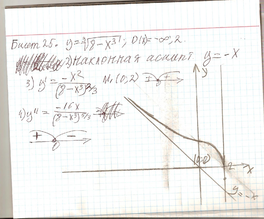 Билет 25. y = ∛(8-x³); D(x)=-∞,2
2) наклонная асимпт y = -x
3) y' = -x² / (8-x³)^2/3 M₁(0,2)
4) y'' = -16x / (8-x³)^5/3
+ -
y
(0;0)
x
y=-x